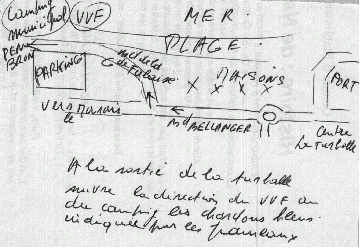 Camping
municipal
VVF
PEN
BRON
MER
PLAGE
PARKING
Bd de la
Falaise
MAISONS
PORT
Vers Marais
le
Bd BELLANGER
Centre
La turballe
A la sortie de la turballe
suivre la direction du VVF ou
du camping les chardons bleus
indiquée par les panneaux